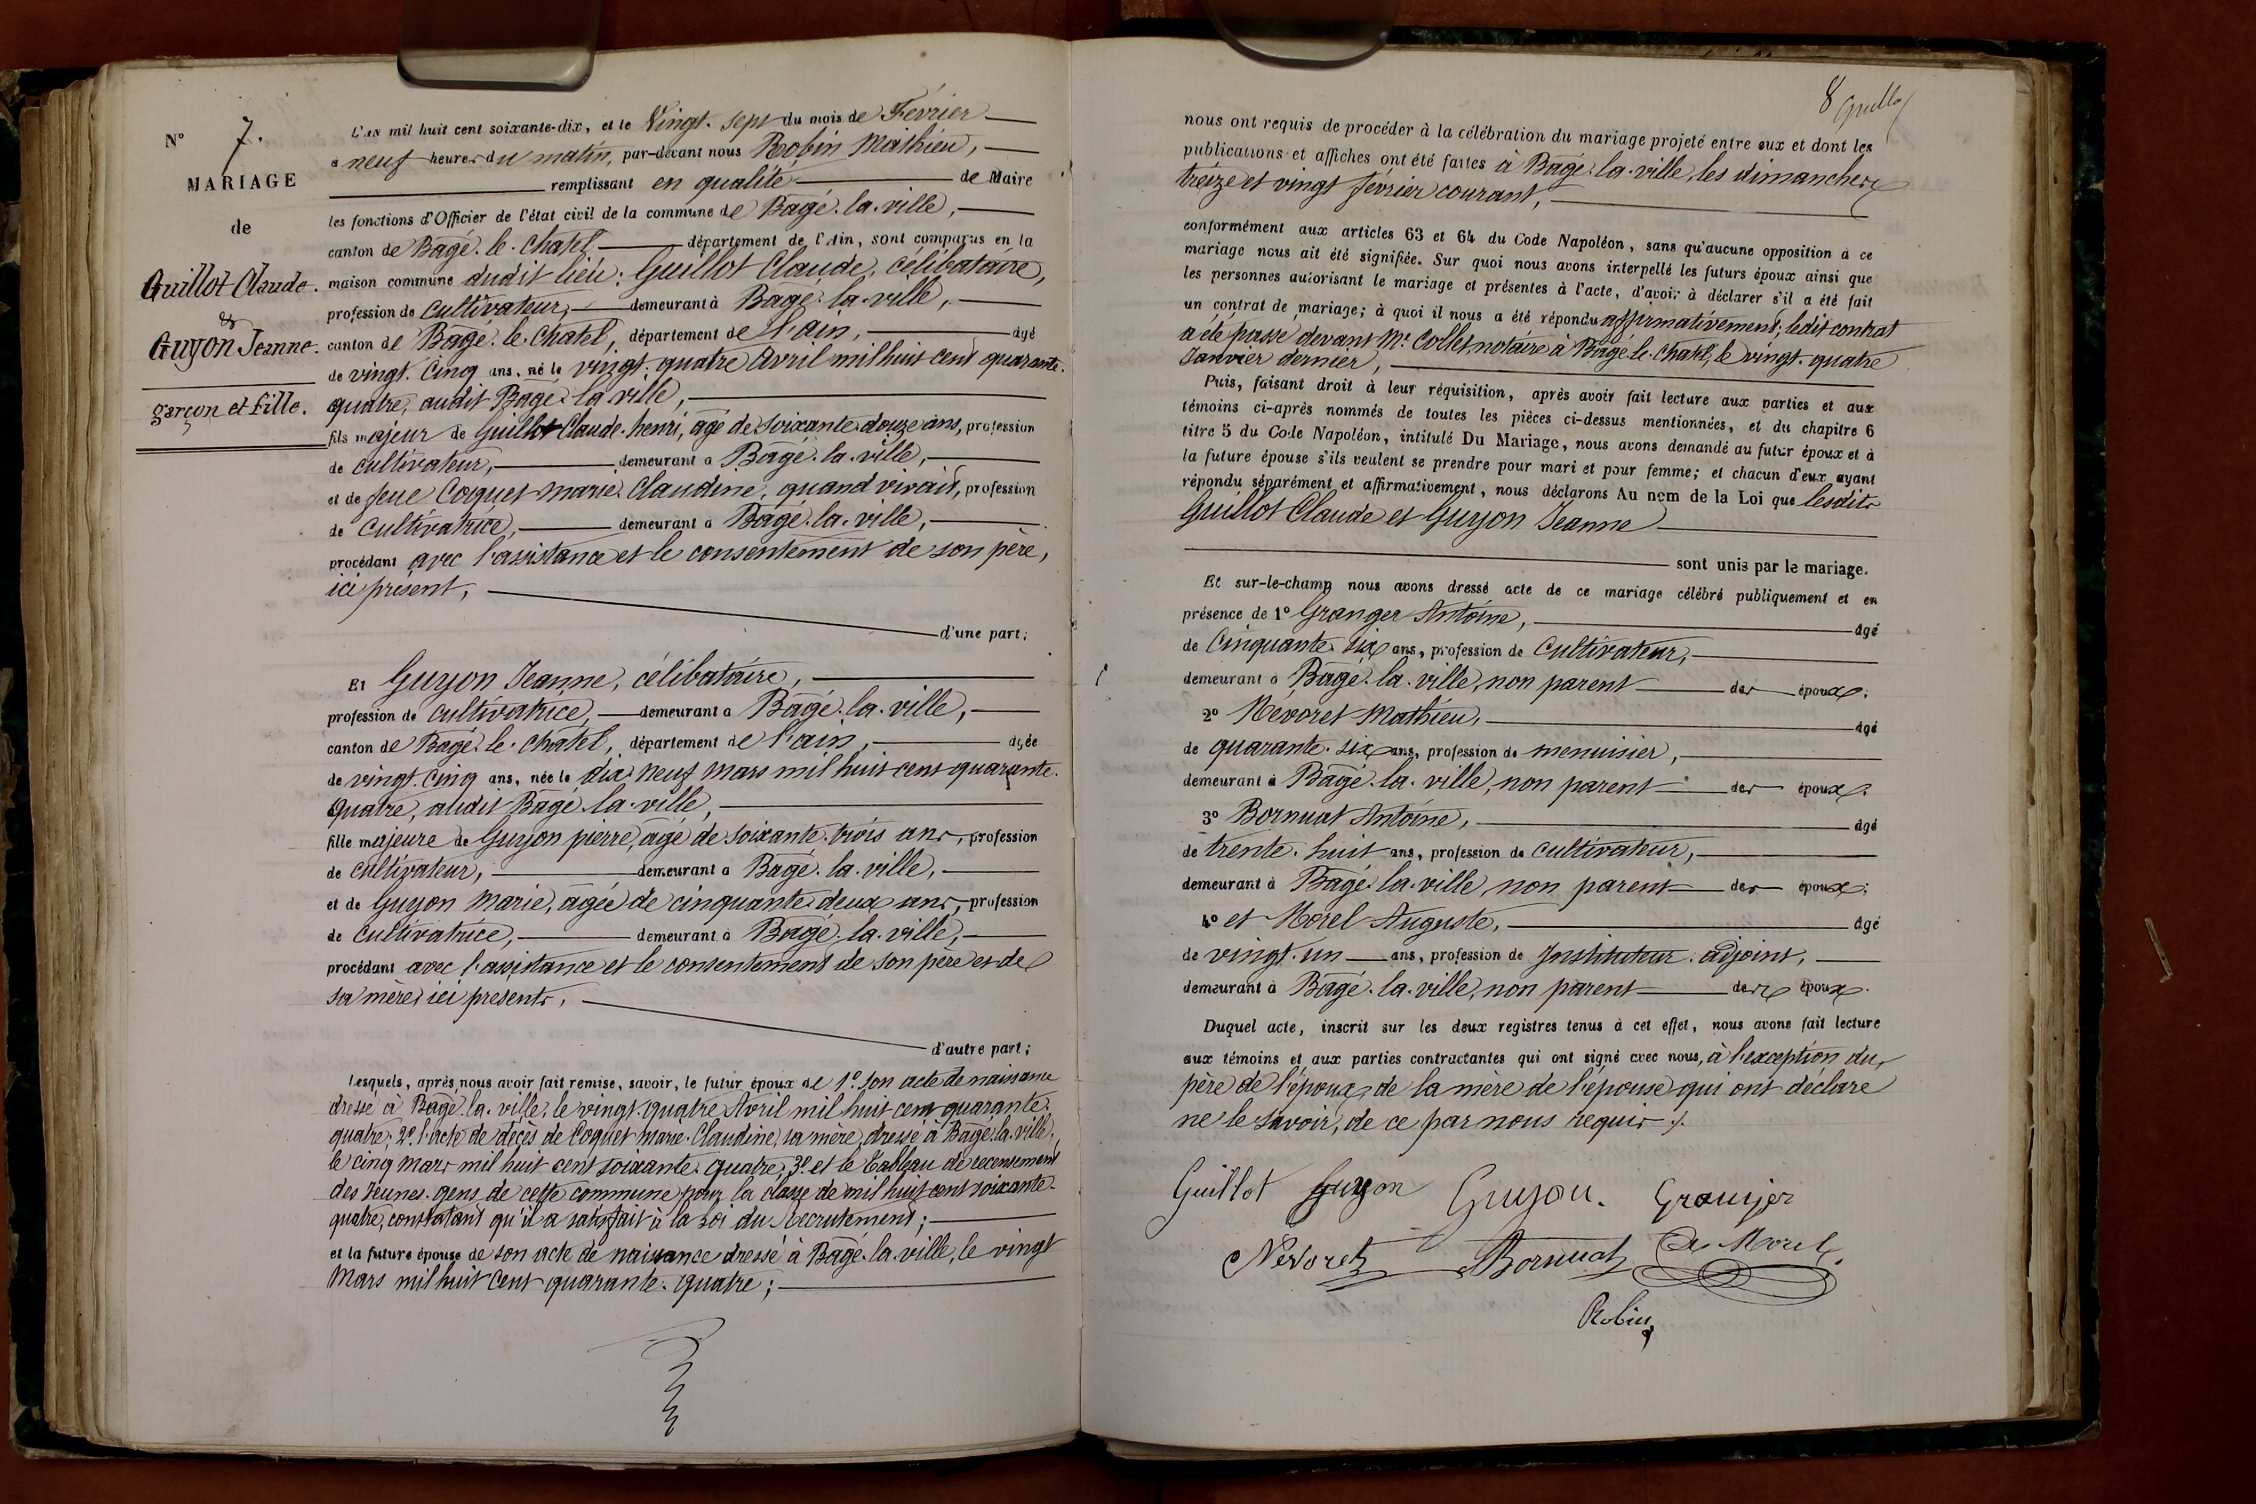 N° 7.
MARIAGE
de
Guillot Claude.
&
Guyon Jeanne.
garçon et fille.
L'AN mil huit cent soixante-dix, et le Vingt-sept du mois de Février
à neuf heures du matin, par-devant nous Robin Mathieu,
remplissant en qualité de Maire
les fonctions d'Officier de l'état civil de la commune de Bâgé-la-ville,
canton de Bâgé-le-Chatel département de l'Ain, sont comparus en la
maison commune dudit lieu: Guillot Claude, célibataire,
profession de cultivateur, demeurant à Bâgé-la-ville,
canton de Bâgé-le-Chatel, département de l'ain, âgé
de vingt-cinq ans, né le vingt-quatre avril mil huit cent quarante-
quatre, audit Bâgé-la-ville,
fils majeur de Guillot Claude-henri, âgé de soixante-douze ans, profession
de cultivateur, demeurant à Bâgé-la-ville,
et de feue Coquet Marie-Claudine, quand vivait, profession
de cultivatrice, demeurant à Bâgé-la-ville,
procédant avec l'assistance et le consentement de son père,
ici présent,
d'une part;
Et Guyon Jeanne, célibataire,
profession de cultivatrice, demeurant à Bâgé-la-ville,
canton de Bâgé-le-Chatel, département de l'ain, âgée
de vingt-cinq ans, née le dix-neuf mars mil huit cent quarante-
quatre, audit Bâgé-la-ville,
fille majeure de Guyon pierre, âgé de soixante-trois ans, profession
de cultivateur, demeurant à Bâgé-la-ville,
et de Guyon Marie, âgée de cinquante-deux ans, profession
de cultivatrice, demeurant à Bâgé-la-ville,
procédant avec l'assistance et le consentement de son père et de
sa mère ici présents,
d'autre part;
Lesquels, après nous avoir fait remise, savoir, le futur époux de 1° son acte de naissance
dressé à Bâgé-la-ville, le vingt-quatre Avril mil huit cent quarante-
quatre; 2° l'acte de décès de Coquet Marie-Claudine, sa mère, dressé à Bâgé-la-ville,
le cinq mars mil huit cent soixante-quatre; 3° et le Tableau de recensement
des Jeunes-gens de cette commune pour la classe de mil huit cent soixante-
quatre, constatant qu'il a satisfait à la Loi du Recrutement;
et la future épouse de son acte de naissance dressé à Bâgé-la-ville, le vingt
Mars mil huit cent quarante-quatre;
8 Guillot
nous ont requis de procéder à la célébration du mariage projeté entre eux et dont les
publications et affiches ont été faites à Bâgé-la-ville, les dimanches
treize et vingt février courant,
conformément aux articles 63 et 64 du Code Napoléon, sans qu'aucune opposition à ce
mariage nous ait été signifiée. Sur quoi nous avons interpellé les futurs époux ainsi que
les personnes autorisant le mariage et présentes à l'acte, d'avoir à déclarer s'il a été fait
un contrat de mariage; à quoi il nous a été répondu affirmativement; ledit contrat
a été passé devant Mr. Collet, notaire à Bâgé-le-Chatel, le vingt-quatre
Janvier dernier,
Puis, faisant droit à leur réquisition, après avoir fait lecture aux parties et aux
témoins ci-après nommés de toutes les pièces ci-dessus mentionnées, et du chapitre 6
titre 5 du Code Napoléon, intitulé Du Mariage, nous avons demandé au futur époux et à
la future épouse s'ils veulent se prendre pour mari et pour femme; et chacun d'eux ayant
répondu séparément et affirmativement, nous déclarons Au nom de la Loi que lesdits
Guillot Claude et Guyon Jeanne
sont unis par le mariage.
Et sur-le-champ nous avons dressé acte de ce mariage célébré publiquement et en
présence de 1° Granger Antoine, âgé
de Cinquante-six ans, profession de cultivateur,
demeurant à Bâgé-la-ville, non parent des époux;
2° Nevoret Mathieu, âgé
de quarante-six ans, profession de menuisier,
demeurant à Bâgé-la-ville, non parent des époux;
3° Bornuat Antoine, âgé
de trente-huit ans, profession de cultivateur,
demeurant à Bâgé-la-ville, non parent des époux;
4° et Morel Auguste, âgé
de vingt-un ans, profession de Instituteur-adjoint,
demeurant à Bâgé-la-ville, non parent des époux.
Duquel acte, inscrit sur les deux registres tenus à cet effet, nous avons fait lecture
aux témoins et aux parties contractantes qui ont signé avec nous, à l'exception du
père de l'époux, de la mère de l'épouse qui ont déclaré
ne le savoir, de ce par nous requis ./.
Guillot Guyon Guyon. Granger
Nevoret Bornuat Morel
Robin